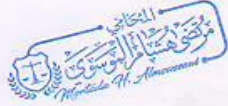 المحامي
مرتضى هشام الموسوي
Murtada H. Almousawi